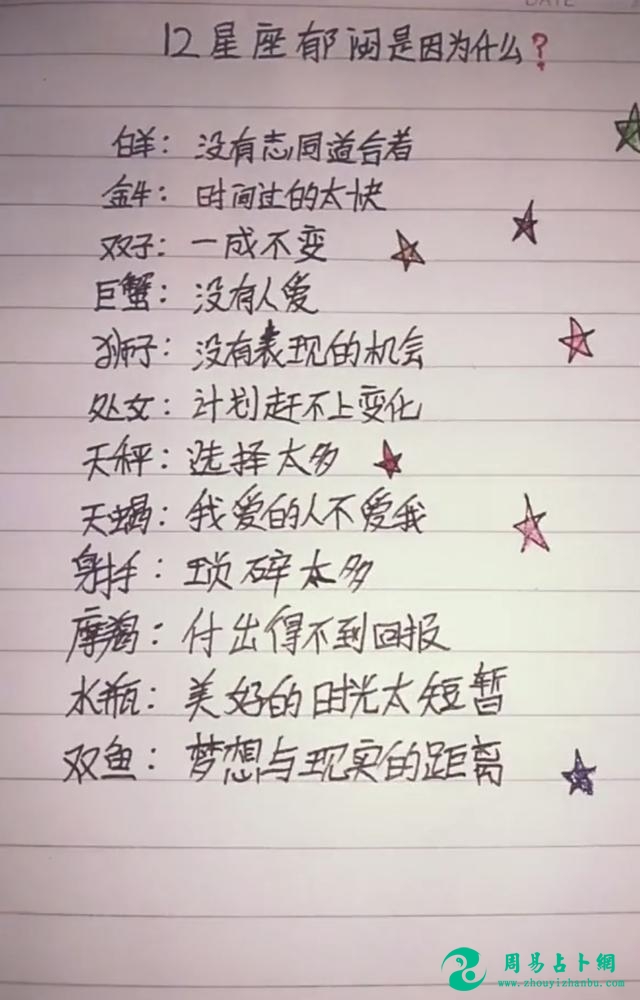 DATE
12星座郁闷是因为什么?
白羊：没有志同道合者
金牛：时间过的太快
双子：一成不变
巨蟹：没有人爱
狮子：没有表现的机会
处女：计划赶不上变化
天秤：选择太多
天蝎：我爱的人不爱我
射手：琐碎太多
摩羯：付出得不到回报
水瓶：美好的时光太短暂
双鱼：梦想与现实的距离
周易占卜網
www.zhouyizhanbu.com